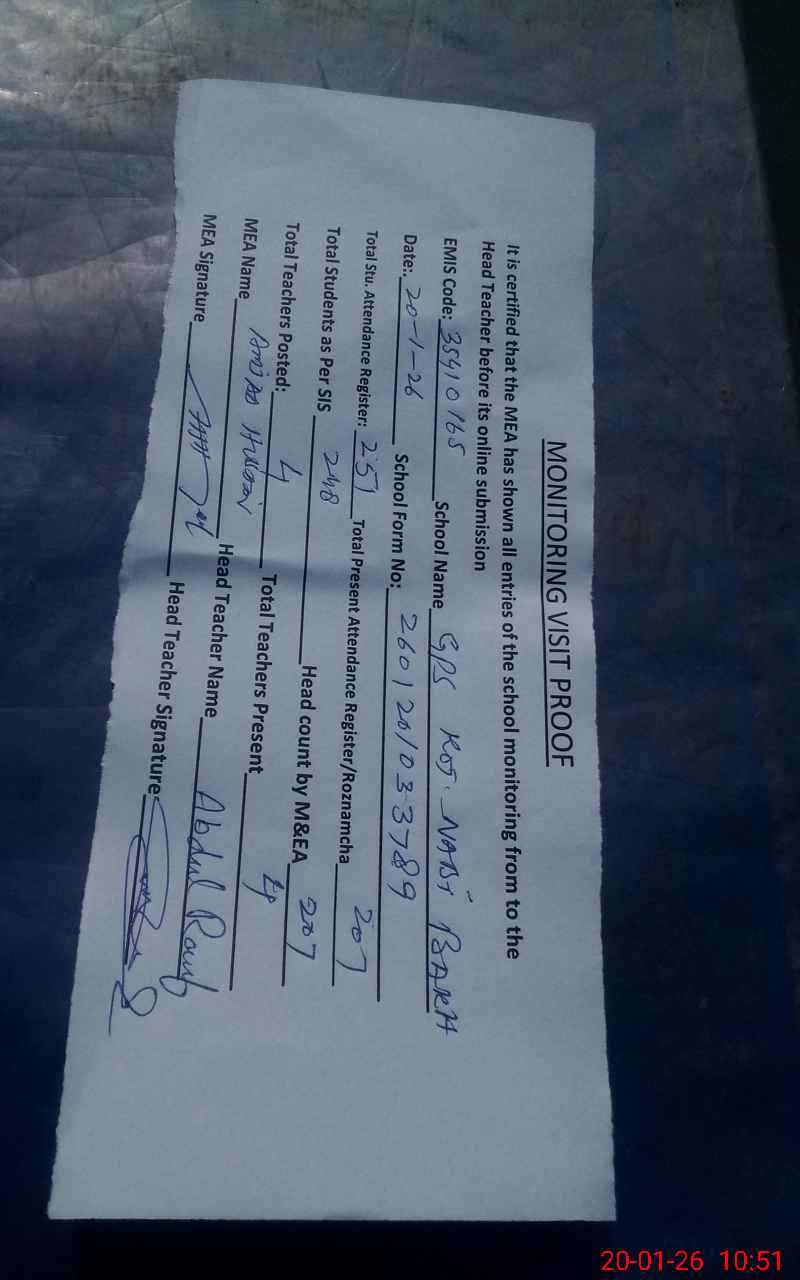 MONITORING VISIT PROOF
It is certified that the MEA has shown all entries of the school monitoring from to the
Head Teacher before its online submission
EMIS Code: 35410165 School Name GPS KOT. NABI BAKH
Date:. 20-1-26 School Form No: 2601201033789
Total Stu. Attendance Register: 251 Total Present Attendance Register/Roznamcha 207
Total Students as Per SIS 248 Head count by M&EA 207
Total Teachers Posted: 4 Total Teachers Present 4
MEA Name Hussain Head Teacher Name Abdul Rauf
MEA Signature Head Teacher Signature
20-01-26 10:51